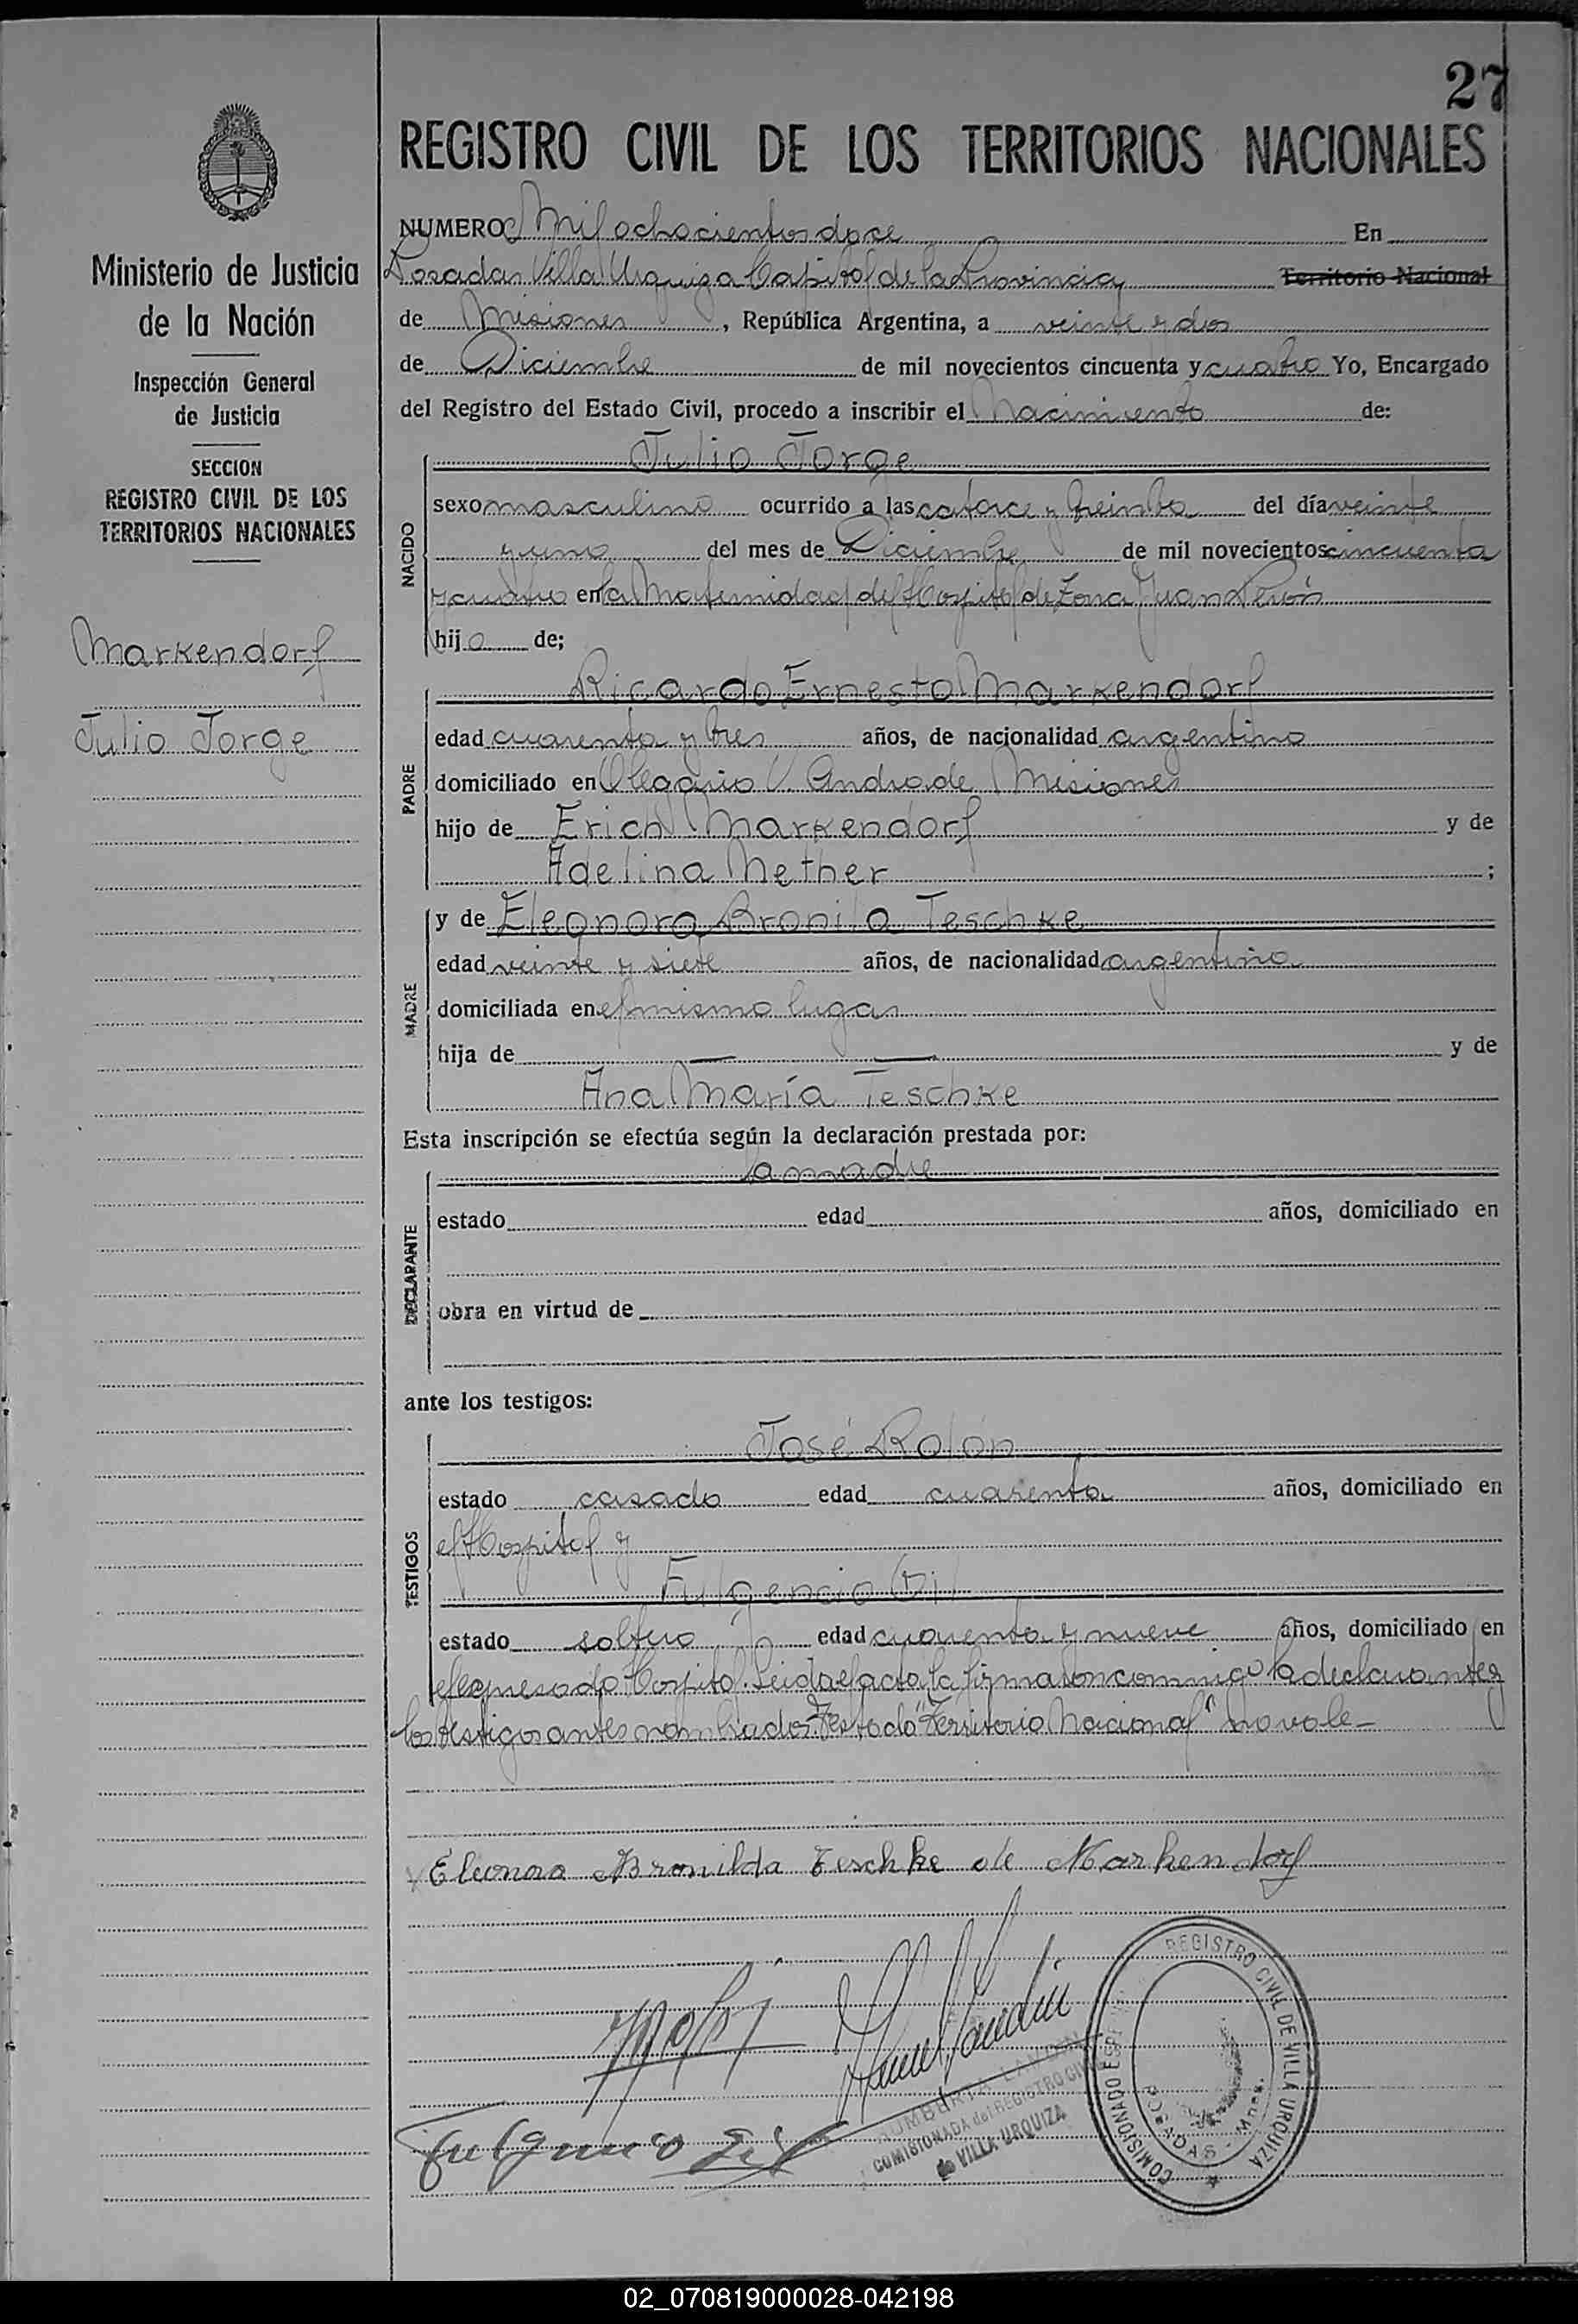 27
REGISTRO CIVIL DE LOS TERRITORIOS NACIONALES
Ministerio de Justicia
de la Nación
Inspección General
de Justicia
SECCION
REGISTRO CIVIL DE LOS
TERRITORIOS NACIONALES
Markendorf
Julio Jorge
NUMERO Mil ochocientos doce En
Posadas Villa Urquiza Capital de la Provincia Territorio Nacional
de Misiones, República Argentina, a veinte y dos
de Diciembre de mil novecientos cincuenta y cuatro Yo, Encargado
del Registro del Estado Civil, procedo a inscribir el Nacimiento de:
NACIDO
Julio Jorge
sexo masculino ocurrido a las catorce y treinta del día veinte
y uno del mes de Diciembre de mil novecientos cincuenta
y cuatro en la Maternidad del Hospital de Zona Juan Perón
hijo de;
PADRE
Ricardo Ernesto Markendorf
edad cuarenta y tres años, de nacionalidad argentino
domiciliado en Olegario V. Andrade Misiones
hijo de Erich Markendorf y de
Adelina Nether ;
MADRE
y de Eleonora Bronila Teschke
edad veinte y siete años, de nacionalidad argentina
domiciliada en el mismo lugar
hija de — — y de
Ana María Teschke
Esta inscripción se efectúa según la declaración prestada por:
DECLARANTE
la madre
estado edad años, domiciliado en
obra en virtud de
ante los testigos:
TESTIGOS
José Rolón
estado casado edad cuarenta años, domiciliado en
el Hospital y
Fulgencio Gil
estado soltero edad cuarenta y nueve años, domiciliado en
el expresado Hospital. Leida el acta la firmaron conmigo la declarante y
los testigos antes nombrados. Testado "Territorio Nacional" no vale -
Eleonora Bronilda Teschke de Markendorf
Fulgencio Gil
COMISIONADA del REGISTRO CIVIL
de VILLA URQUIZA
REGISTRO CIVIL DE VILLA URQUIZA
COMISIONADO
POSADAS - Mnes.
02_070819000028-042198